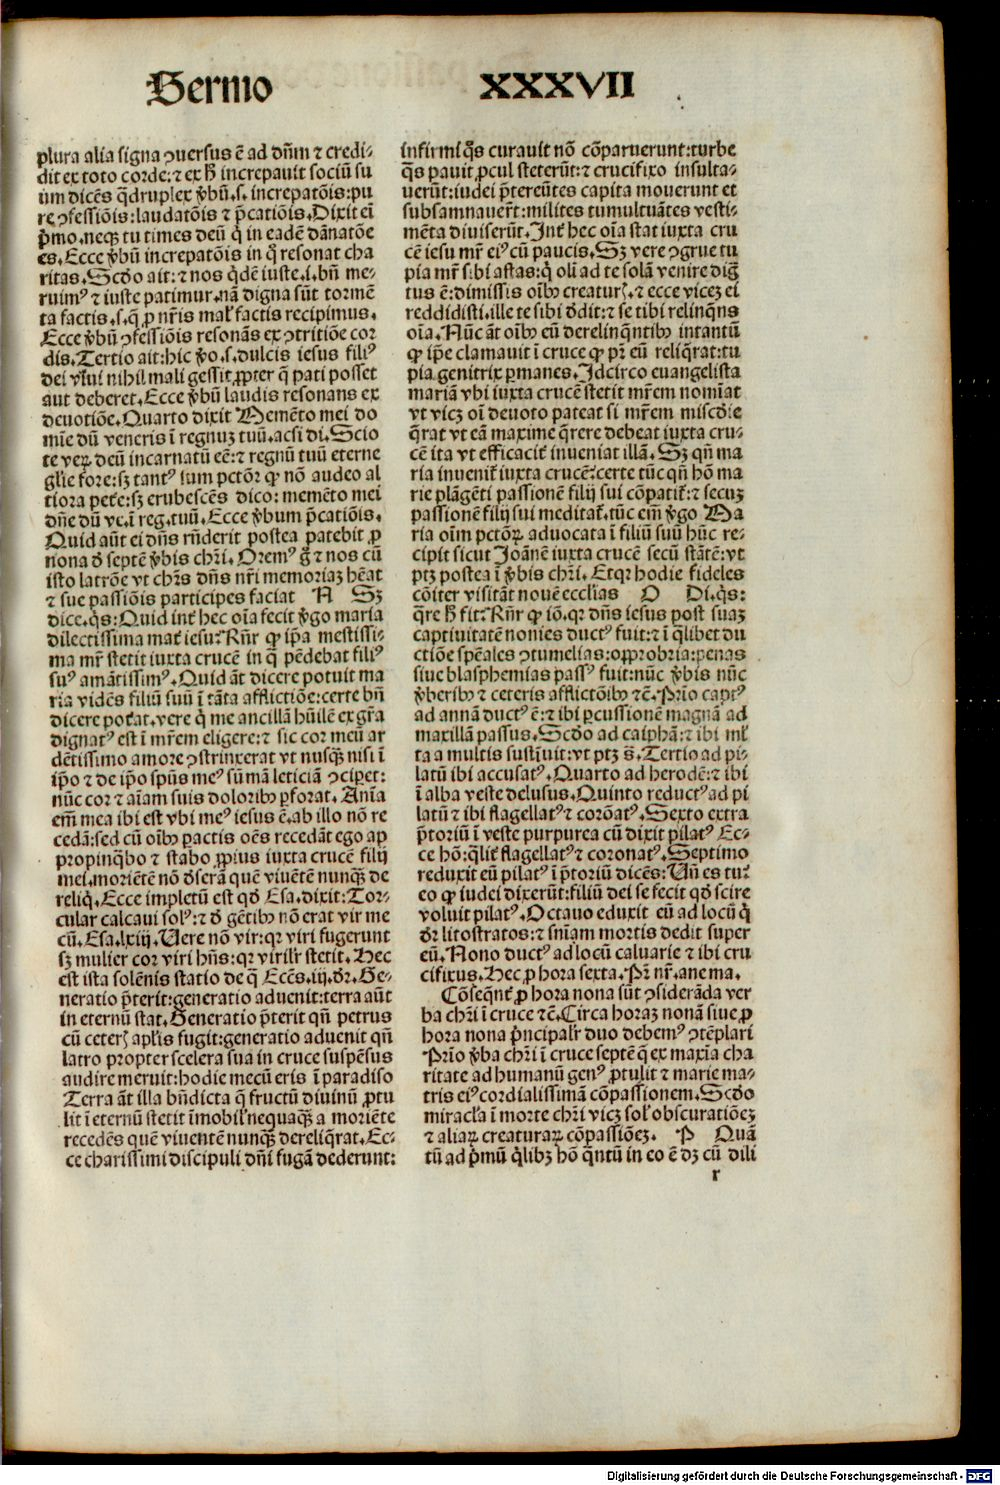 Sermo XXXVII
plura alia signa ꝯuersus ē ad dn̄m ⁊ credi-
dit ex toto corde: ⁊ ex h̄ increpauit sociū su
um dicēs q̄druplex v̄bū .s. increpatōis: pu
re ꝯfessiōis: laudatōis ⁊ p̄catiōis. Dixit eī
p̄mo. neqꝫ tu times deū q̇ in eadē dānatōe
es. Ecce v̄bū increpatōis in q̄ resonat cha
ritas. Scd̄o ait: ⁊ nos q̄dē iuste .i. bn̄ me-
ruimꝰ ⁊ iuste patimur. nā digna sūt tormē
ta factis .s. q̄ ꝓ nr̄is mal̄ factis recipimus.
Ecce v̄bū ꝯfessiōis resonās ex ꝯtritiōe cor
dis. Tertio ait: hic v̄o .s. dulcis iesus filiꝰ
dei viui nihil mali gessit ꝓpter q̄ pati posset
aut deberet. Ecce v̄bū laudis resonans ex
deuotiōe. Quarto dixit Memēto mei do
mīe dū veneris ī regnuꝫ tuū. acsi di. Scio
te veꝝ deū incarnatū eē: ⁊ regnū tuū eterne
gl̄ie fore: sꝫ tantꝰ sum pctōr ꝙ nō audeo al
tiora pet̄e: sꝫ erubescēs dico: memēto mei
dn̄e dū vē. ī reg. tuū. Ecce v̄bum p̄catiōis.
Quid aūt ei dn̄s rn̄derit postea patebit ꝓ
nona ꝺ̄ septē v̄bis chr̄i. Oremꝰ g̊ ⁊ nos cū
isto latrōe vt chr̄s dn̄s nr̄i memoriaꝫ hēat
⁊ sue passiōis participes faciat N Sꝫ
dice. q̄s: Quid int̄ hec oīa fecit v̄go maria
dilectissima mat̄ iesu? Rn̄r ꝙ ip̄a mestissi-
ma mr̄ stetit iuxta crucē in q̄ pēdebat filiꝰ
suꝰ amātissimꝰ. Quid āt dicere potuit ma
ria vidēs filiū suū ī tāta afflictiōe: certe bn̄
dicere pot̄at. vere q̇ me ancillā hūilē ex gr̄a
dignatꝰ est ī mr̄em eligere: ⁊ sic cor meū ar
dētissimo amore ꝯstrinxerat vt nusq̄ꝫ nisi ī
ip̄o ⁊ de ip̄o spūs meꝰ sūmā leticiā ꝯciꝑet:
nūc cor ⁊ aīam suis doloribꝫ ꝑforat. Anīa
em̄ mea ibi est vbi meꝰ iesus ē. ab illo nō re
cedā: sed cū oībꝫ ꝑactis oēs recedāt ego ap
propinq̄bo ⁊ stabo ꝓpius iuxta crucē filij
mei. moriētē nō ꝺ̄serā quē viuētē nunq̄ꝫ de
reliq̇. Ecce impletū est qd̄ Esa. dixit: Tor-
cular calcaui solꝰ: ⁊ ꝺ̄ gētibꝫ nō erat vir me
cū. Esa. lxiij. Uere nō vir: qꝛ viri fugerunt
sꝫ mulier cor viri hn̄s: qꝛ virilr̄ stetit. Hec
est ista solēnis statio de q̄ Eccēs. iij. dr̄. Ge-
neratio p̄terit: generatio aduenit: terra aūt
in eternū stat. Generatio p̄terit qn̄ petrus
cū ceteris apl̄is fugit: generatio aduenit qn̄
latro propter scelera sua in cruce suspēsus
audire meruit: hodie mecū eris ī paradiso
Terra āt illa bn̄dicta q̄ fructū diuinū ꝓtu
lit ī eternū stetit īmobil̄ nequaq̄ꝫ a moriēte
recedēs quē viuentē nunq̄ꝫ dereliq̄rat. Ec-
ce charissimi discipuli dn̄i fugā dederunt:
infirmi q̄s curauit nō cōparuerunt: turbe
q̄s pauit ꝓcul steterūt: ⁊ crucifixo insulta-
uerūt: iudei p̄tereūtes capita mouerunt et
subsamnauer̄t: milites tumultuātes vesti-
mēta diuiserūt. Int̄ hec oīa stat iuxta cru
cē iesu mr̄ eiꝰ cū paucis. Sꝫ vere ꝯgrue tu
pia mr̄ sibi astas: q̇ oli ad te solā venire diḡ
tus ē: dimissis oībꝫ creaturis. ⁊ ecce viceꝫ ei
reddidisti. ille te sibi ꝺ̄dit: ⁊ se tibi relinq̄ns
oīa. Nūc āt oībꝫ eū derelinq̄ntibꝫ intantū
ꝙ ip̄e clamauit ī cruce ꝙ pr̄ eū reliq̄rat: tu
pia genitrix ꝑmanes. Idcirco euangelista
mariā vbi iuxta crucē stetit mr̄em nomīat
vt viꝫ oī deuoto pateat si mr̄em miscd̄ie
q̄rat vt eā maxime q̄rere debeat iuxta cru-
cē ita vt efficacit̄ inueniat illā. Sꝫ qn̄ ma
ria inuenit̄ iuxta crucē? certe tūc qn̄ hō ma
rie plāgēti passionē filij sui cōpatit̄: ⁊ secuꝫ
passionē filij sui meditat̄. tūc em̄ v̄go Ma
ria oīm pctōꝝ aduocata ī filiū suū hūc re-
cipit sicut Joānē iuxta crucē secū stātē: vt
ptꝫ postea ī v̄bis chr̄i. Etqꝛ hodie fideles
cōiter visitāt nouē eccl̄ias O Di. q̄s:
q̄re h̄ fit? Rn̄r ꝙ iō. qꝛ dn̄s iesus post suaꝫ
captiuitatē nonies ductꝰ fuit: ⁊ ī q̄libet du
ctiōe spēales ꝯtumelias: opprobria: penas
siue blasphemias passꝰ fuit: nūc v̄bis nūc
v̄beribꝫ ⁊ ceteris afflictōibꝫ ⁊c̄. Prīo captꝰ
ad annā ductꝰ ē: ⁊ ibi ꝑcussionē magnā ad
maxillā passus. Scd̄o ad caiphā: ⁊ ibi ml̄
ta a multis sustinuit: vt ptꝫ s̄. Tertio ad pi-
latū ibi accusatꝰ. Quarto ad herodē: ⁊ ibi
ī alba veste delusus. Quinto reductꝰ ad pi
latū ⁊ ibi flagellatꝰ ⁊ corōatꝰ. Sexto extra
p̄toriū ī veste purpurea cū dixit pilatꝰ Ec-
ce hō: q̄lit̄ flagellatꝰ ⁊ coronatꝰ. Septimo
reduxit eū pilatꝰ ī p̄toriū dicēs: Un̄ es tu?
eo ꝙ iudei dixerūt: filiū dei se fecit qd̄ scire
voluit pilatꝰ. Octauo eduxit eū ad locū q̇
dr̄ litostratos: ⁊ sn̄iam mortis dedit super
eū. Nono ductꝰ ad locū caluarie ⁊ ibi cru
cifixus. Hec ꝓ hora sexta. Pr̄ nr̄. aue ma.
Cōseq̄nt̄ ꝓ hora nona sūt ꝯsiderāda ver
ba chr̄i ī cruce ⁊c̄. Circa horaꝫ nonā siue ꝓ
hora nona p̄ncipalr̄ duo debemꝰ ꝯtēplari
Prīo v̄ba chr̄i ī cruce septē q̄ ex maxīa cha
ritate ad humanū genꝰ ꝓtulit ⁊ marie ma-
tris eiꝰ cordialissimā cōpassionem. Scd̄o
miracl̄a ī morte chr̄i viꝫ sol̄ obscuratiōeꝫ
⁊ aliaꝝ creaturaꝝ cōpassiōeꝫ. P Quā
tū ad p̄mū q̄libꝫ hō q̄ntū in eo ē dꝫ cū dili
r
Digitalisierung gefördert durch die Deutsche Forschungsgemeinschaft - DFG